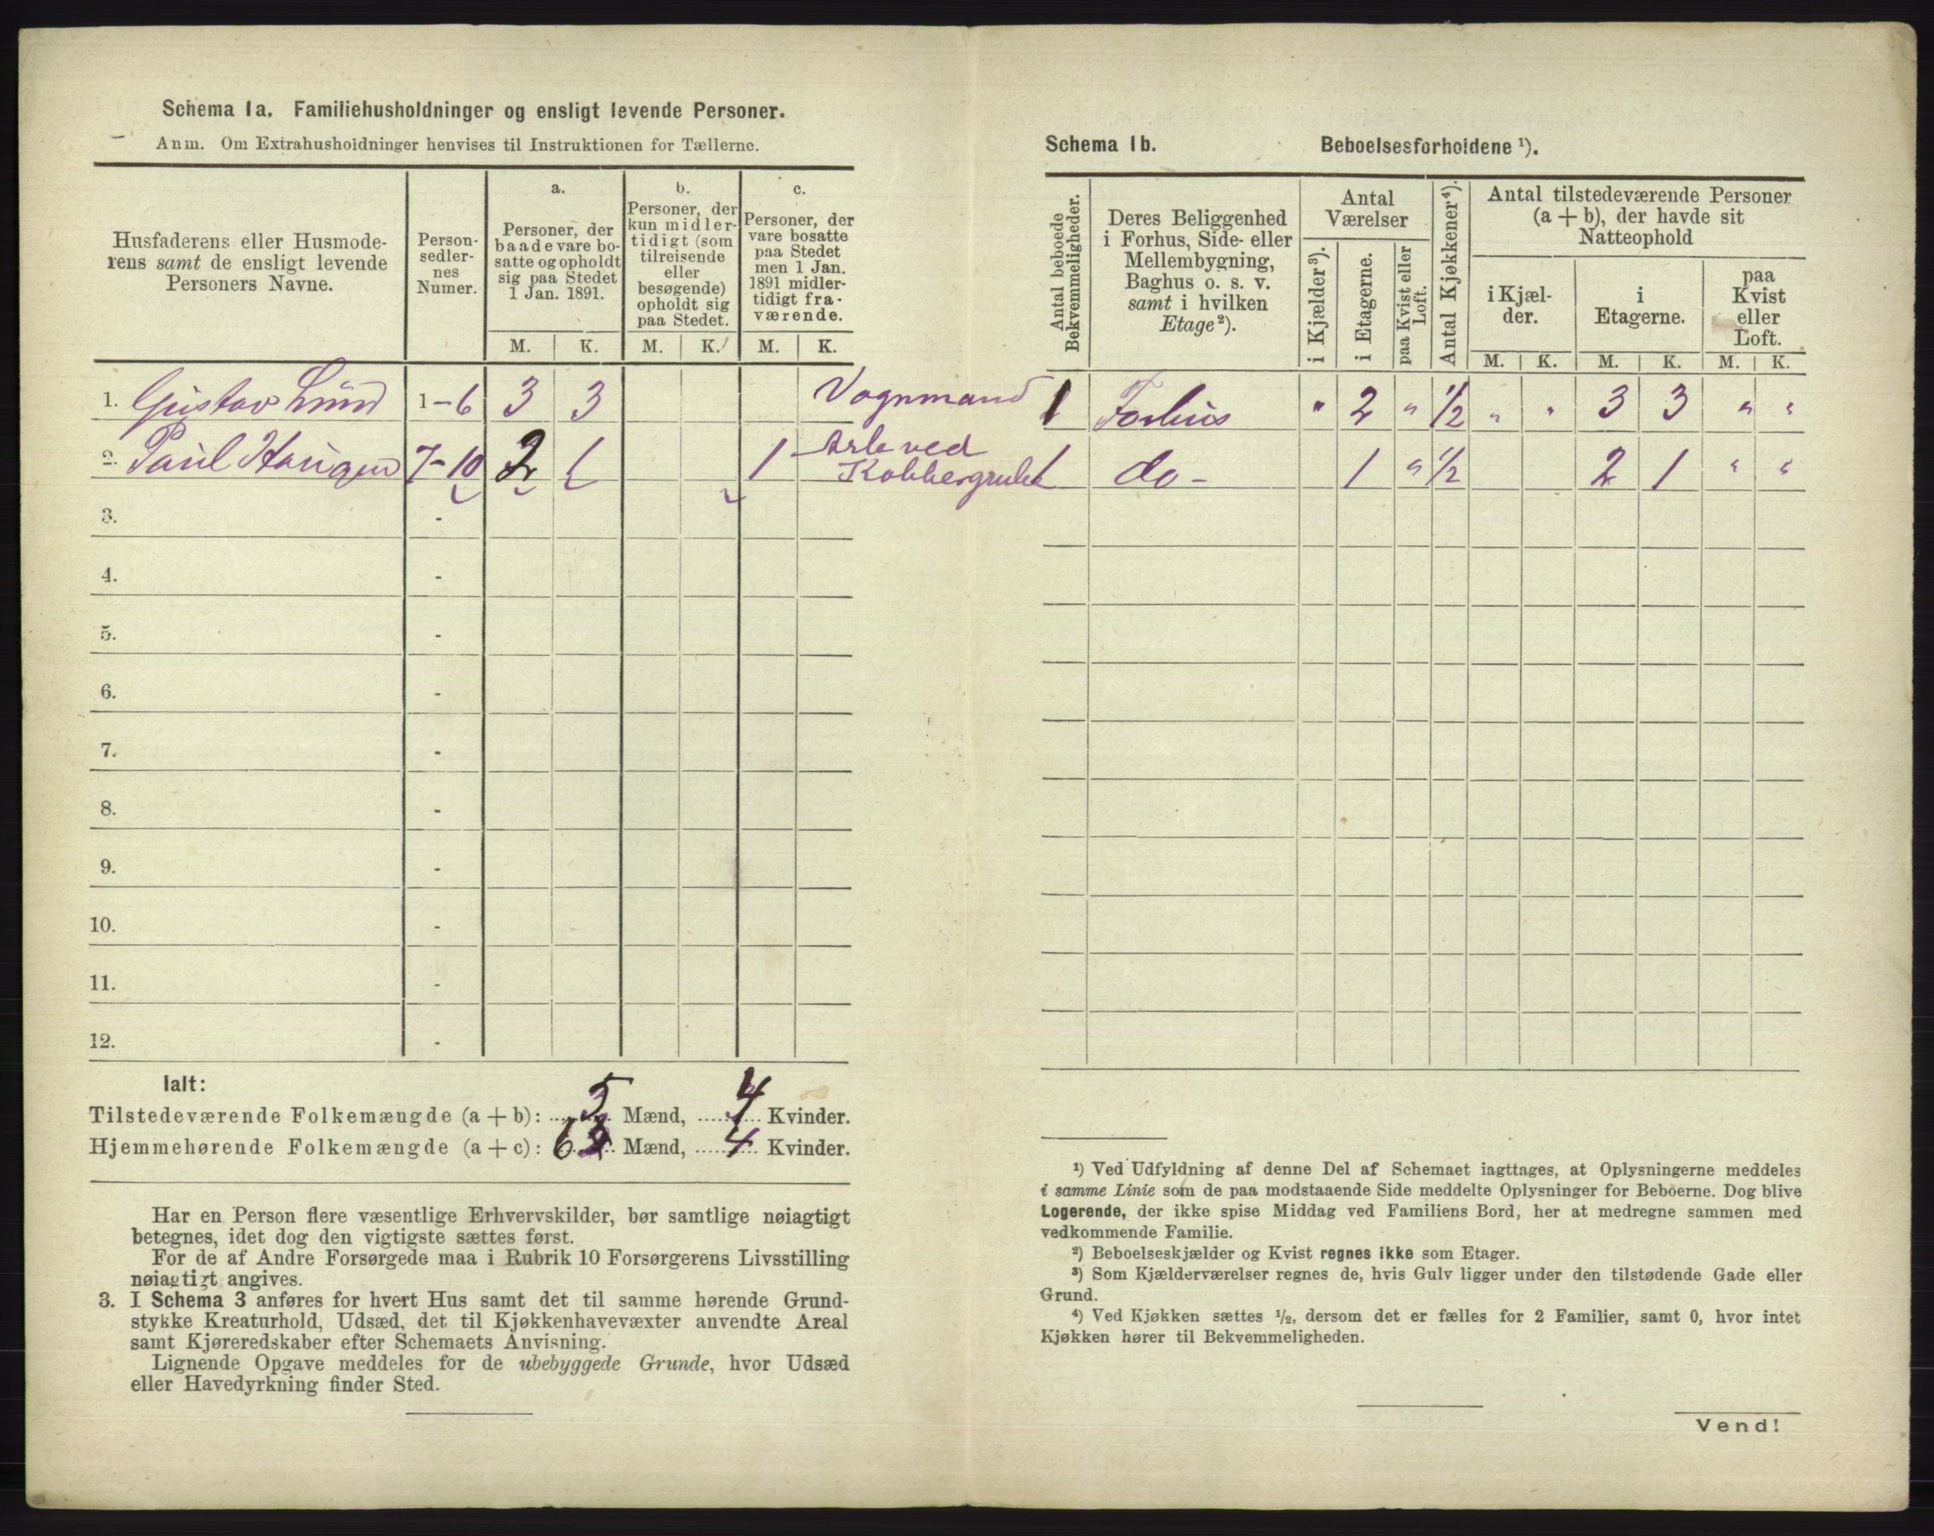 Schema 1a. Familiehusholdninger og ensligt levende Personer.
Anm. Om Extrahusholdninger henvises til Instruktionen for Tællerne.
Husfaderens eller Husmoderens samt de ensligt levende Personers Navne.
Personsedlernes Numer.
a. Personer, der baade vare bosatte og opholdt sig paa Stedet 1 Jan. 1891.
b. Personer, der kun midlertidigt (som tilreisende eller besøgende) opholdt sig paa Stedet.
c. Personer, der vare bosatte paa Stedet men 1 Jan. 1891 midlertidigt fraværende.
M. K. M. K. M. K.
1. Gustav Lund 1-6 3 3 Vognmand
2. Paul Haugen 7-10 2 1 1 Arb ved
Kobbergrube
3. -
4. -
5. -
6. -
7. -
8. -
9. -
10. -
11. -
12. -
Ialt:
Tilstedeværende Folkemængde (a + b): 5 Mænd, 4 Kvinder.
Hjemmehørende Folkemængde (a + c): 6 Mænd, 4 Kvinder.
Har en Person flere væsentlige Erhvervskilder, bør samtlige nøiagtigt
betegnes, idet dog den vigtigste sættes først.
For de af Andre Forsørgede maa i Rubrik 10 Forsørgerens Livsstilling
nøiagtigt angives.
3. I Schema 3 anføres for hvert Hus samt det til samme hørende Grund-
stykke Kreaturhold, Udsæd, det til Kjøkkenhavevæxter anvendte Areal
samt Kjøreredskaber efter Schemaets Anvisning.
Lignende Opgave meddeles for de ubebyggede Grunde, hvor Udsæd
eller Havedyrkning finder Sted.
Schema 1b. Beboelsesforholdene ¹).
Antal beboede Bekvemmeligheder.
Deres Beliggenhed i Forhus, Side- eller Mellembygning, Baghus o. s. v. samt i hvilken Etage²).
Antal Værelser
i Kjælder³).
i Etagerne.
paa Kvist eller Loft.
Antal Kjøkkener⁴).
Antal tilstedeværende Personer (a + b), der havde sit Natteophold
i Kjælder.
i Etagerne.
paa Kvist eller Loft.
M. K. M. K. M. K.
1 Forhus " 2 " 1/2 " " 3 3 " "
1 do - 1 " 1/2 2 1 " "
¹) Ved Udfyldning af denne Del af Schemaet iagttages, at Oplysningerne meddeles
i samme Linie som de paa modstaaende Side meddelte Oplysninger for Beboerne. Dog blive
Logerende, der ikke spise Middag ved Familiens Bord, her at medregne sammen med
vedkommende Familie.
²) Beboelseskjælder og Kvist regnes ikke som Etager.
³) Som Kjælderværelser regnes de, hvis Gulv ligger under den tilstødende Gade eller
Grund.
⁴) Ved Kjøkken sættes ½, dersom det er fælles for 2 Familier, samt 0, hvor intet
Kjøkken hører til Bekvemmeligheden.
Vend!